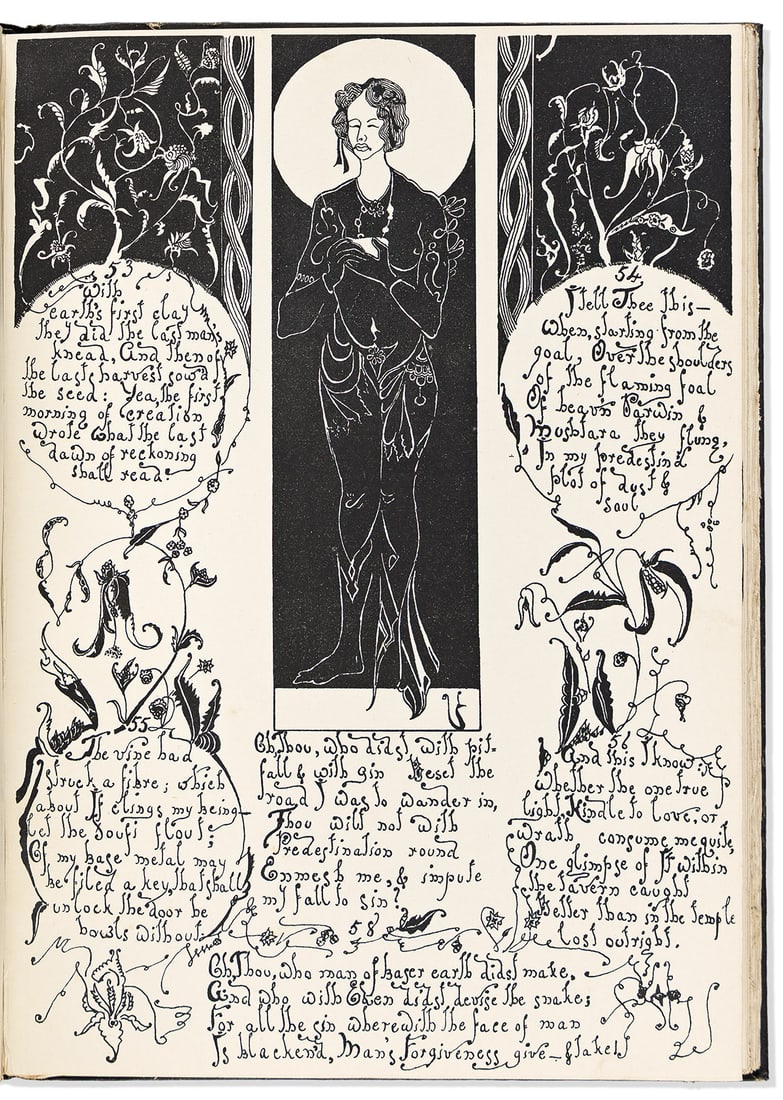 53
With
earth's first clay
they did the last man's
knead, And then of
the last harvest sow'd
the seed: Yea, the first
morning of creation
wrote What the last
dawn of reckoning
shall read.
54
I tell Thee this—
When, starting from the
goal, Over the shoulders
of the flaming foal
Of heav'n Parwin &
Mushtara they flung,
In my predestin'd
plot of dust &
soul
55
The vine had
struck a fibre; which
about It clings my being—
let the Soufi flout;
Of my base metal may
be filed a key, that shall
unlock the door he
howls without.
56
And this I know:
Whether the one true
light, Kindle to Love, or
Wrath consume me quite,
One glimpse of It within
the tavern caught
Better than in the temple
lost outright.
Oh, Thou, who didst with pit-
fall & with gin Beset the
road I was to wander in,
Thou will not with
Predestination round
Enmesh me, & impute
my fall to sin?
58
Oh, Thou, who man of baser earth didst make,
And who with Eden didst devise the snake;
For all the sin wherewith the face of man
Is blacken'd, Man's Forgiveness give—& take!